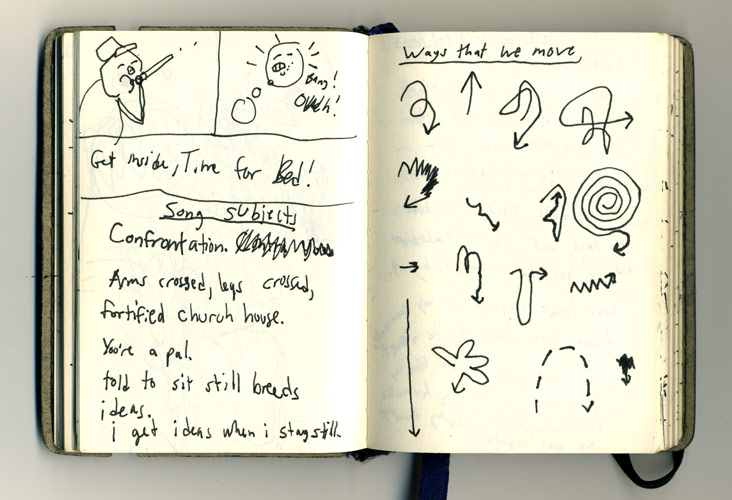 Bang!
Ouch!
Get inside, Time for Bed!
Song subjects
Confrontation.
Arms crossed, legs crossed,
fortified church house.
You're a pal.
told to sit still breeds
ideas.
i get ideas when i stay still.
Ways that we move